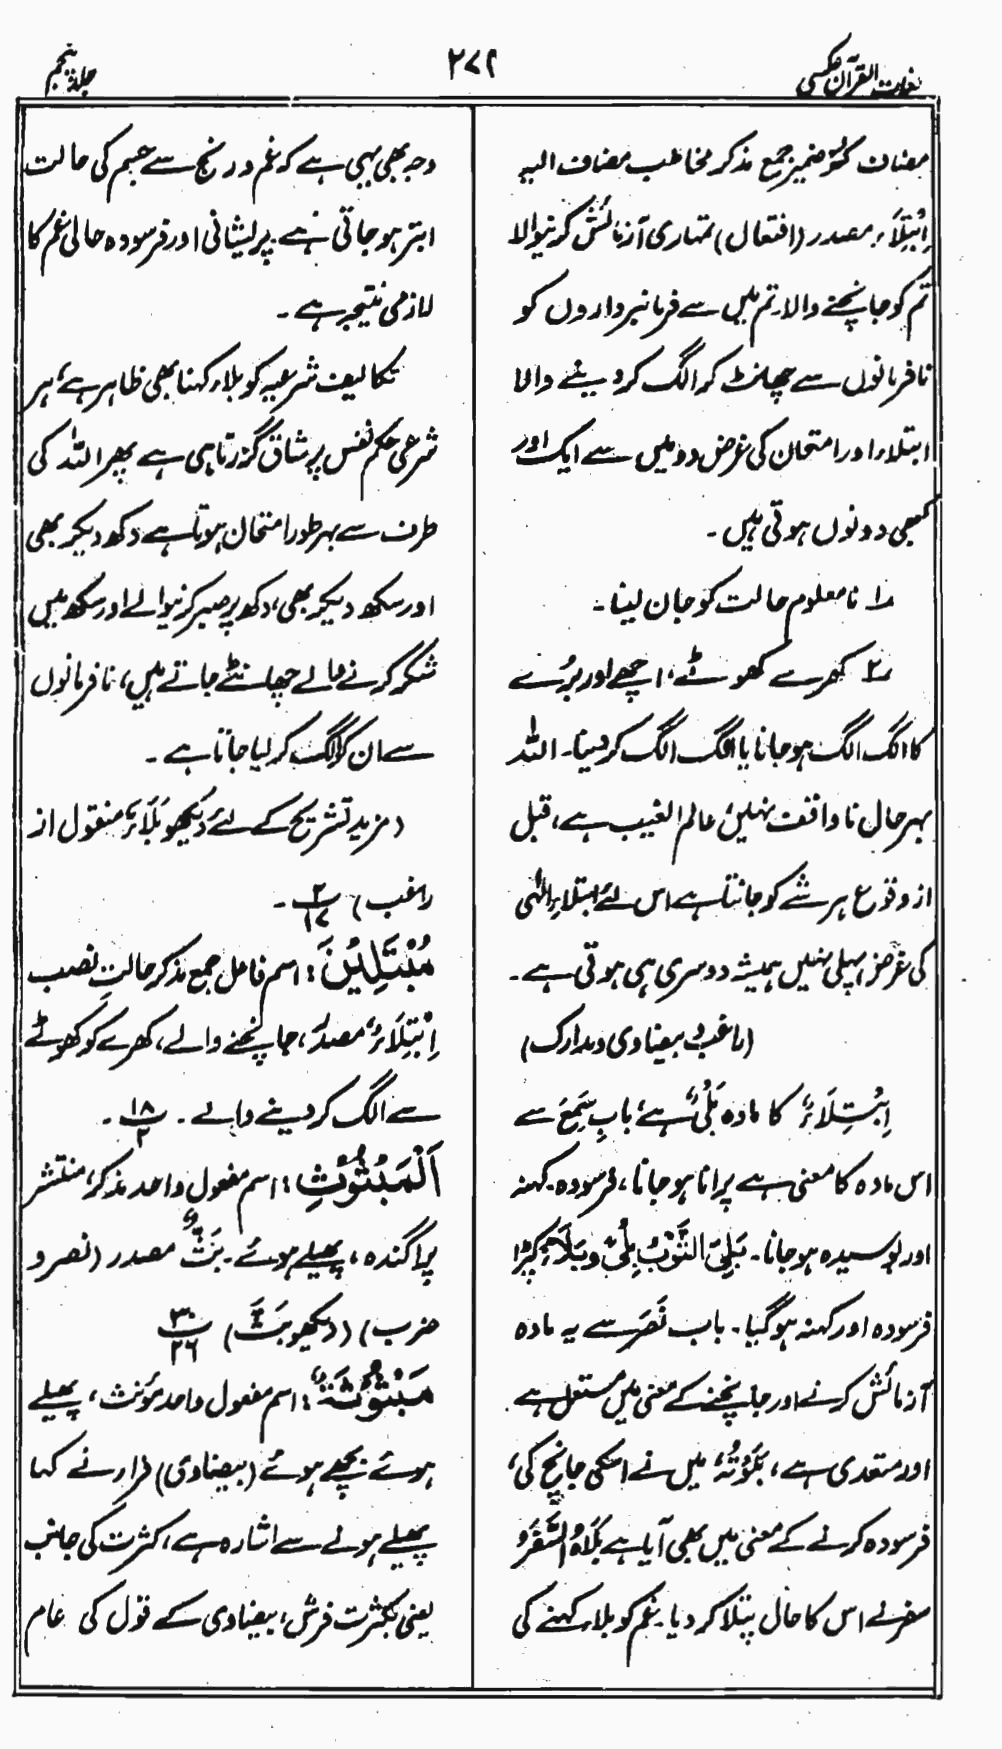 لغات القرآن عکسی
۲۷۲
جلد پنجم
مضاف کُمْ ضمیر جمع مذکر مخاطب مضاف الیہ
اِبْتِلَاءٌ مصدر (افتعال) تمہاری آزمائش کرنیوالا
تم کو جانچنے والا۔ تم میں سے فرمانبرداروں کو
نافرمانوں سے چھانٹ کر الگ کر دینے والا
ابتلاء اور امتحان کی غرض دو میں سے ایک اور
کبھی دونوں ہوتی ہیں۔
۱؎ نامعلوم حالت کو جان لینا۔
۲؎ کھرے کھوٹے، اچھے اور بُرے
کا الگ الگ ہو جانا یا الگ الگ کر دینا۔ اللہ
بہر حال ناواقف نہیں، عالم الغیب ہے، قبل
از وقوع ہر شے کو جانتا ہے اس لئے ابتلاء الٰہی
کی غرض پہلی نہیں ہمیشہ دوسری ہی ہوتی ہے۔
(راغب، بیضاوی و مدارک)
اِبْتِلَاءٌ کا مادہ بَلْیٌ ہے، بابِ سَمِعَ سے
اس مادہ کا معنی ہے پرانا ہو جانا، فرسودہ۔ کہنہ
اور بوسیدہ ہو جانا۔ بَلِیَ الثَّوْبُ بِلًی وبَلَاءً کپڑا
فرسودہ اور کہنہ ہو گیا۔ باب نَصَرَ سے یہ مادہ
آزمائش کرنے اور جانچنے کے معنی میں مستعمل ہے
اور متعدی ہے، بَلَوْتُہٗ میں نے اسکی جانچ کی،
فرسودہ کرنے کے معنی میں بھی آیا ہے بَلَاہُ السَّفَرُ
سفر نے اس کا حال پتلا کر دیا۔ غم کو بلاء کہنے کی
وجہ بھی یہی ہے کہ غم و رنج سے جسم کی حالت
ابتر ہو جاتی ہے۔ پریشانی اور فرسودہ حالی غم کا
لازمی نتیجہ ہے۔
تکالیف شرعیہ کو بلاء کہنا بھی ظاہر ہے، ہر
شرعی حکم نفس پر شاق گزرتا ہی ہے پھر اللہ کی
طرف سے بہر طور امتحان ہوتا ہے دکھ دیکر بھی
اور سکھ دیکر بھی، دکھ پر صبر کرنیوالے اور سکھ میں
شکر کرنے والے چھانٹے جاتے ہیں، نافرمانوں
سے ان کو الگ کر لیا جاتا ہے۔
(مزید تشریح کے لئے دیکھو بَلَاءٌ، منقول از
راغب) ۲/۱۷۔
مُبْتَلِیْنَ: اسم فاعل جمع مذکر حالتِ نصب
اِبْتِلَاءٌ، مصدر، جانچنے والے، کھرے کو کھوٹے
سے الگ کر دینے والے۔ ۱۸/۲۔
اَلْمَبْثُوْثِ: اسم مفعول واحد مذکر، منتشر
پراگندہ، پھیلے ہوئے۔ بَثٌّ مصدر (نصر و
ضرب) (دیکھو بَثَّ) ۳۰/۲۶
مَبْثُوْثَۃٌ: اسم مفعول واحد مؤنث، پھیلے
ہوئے بچھے ہوئے (بیضاوی) فراء نے کہا
پھیلے ہونے سے اشارہ ہے، کثرت کی جانب
یعنی بکثرت فرش، بیضاوی کے قول کی عام